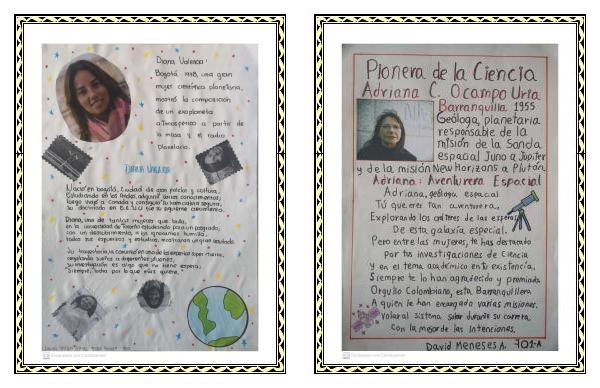 Diana Valencia
Bogotá 1978, una gran
mujer científica planetaria,
mostró la composición
de un exoplaneta
atmosférico a partir de
la masa y el radio
Planetario.
DIANA VALENCIA
Nació en Bogotá, ciudad de gran
Estudiando en los Andes, adquirió varios conocimientos,
luego viajó a Canadá y consiguió
su doctorado en
Diana, una de tantas mujeres que
en la universidad de Toronto
con un descubrimiento,
todos sus esfuerzos y estudios, mostraron un gran resultado.
Su trayectoria la convirtió en una de las
a diferentes jóvenes,
su investigación es algo que no tiene espera,
"Siempre, lucha por lo que más quiera."
Escaneado con CamScanner
Pionera de la Ciencia
Adriana C. Ocampo Uria
Barranquilla 1955
Geóloga, planetaria
responsable de la
misión de la Sonda
espacial Juno a Júpiter
y de la misión New Horizons a Plutón.
Adriana: Aventurera Espacial
Adriana, geóloga espacial
Tú que eres tan aventurera,
Explorando los cráteres de las esferas
De esta galaxia especial.
Pero entre las mujeres, te has destacado
por tus investigaciones de Ciencia
y en el tema académico en tu existencia,
Siempre te lo han agradecido y premiado
Orgullo Colombiano, esta Barranquillera
A quien le han encargado varias misiones.
Volar al sistema solar durante su carrera
con la mejor de las intenciones.
David Meneses A. 701-A
Escaneado con CamScanner